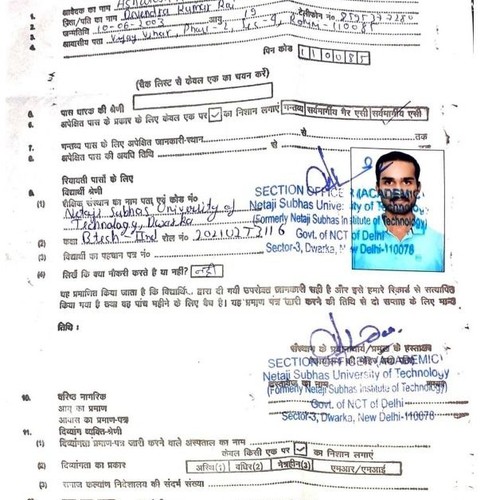 1. आवेदक का नाम
2. पिता/पति का नाम Arvindra Kumar Rai
3. जन्मतिथि 10-06-2003 आयु 19 टेलीफोन नं०
4. आवासीय पता Vijay Vihar, Phase-2, Rohini-110085
पिन कोड 110085
(चैक लिस्ट से केवल एक का चयन करें)
5. पास धारक की श्रेणी
6. अपेक्षित पास के प्रकार के लिए केवल एक पर ✓ का निशान लगाएं गन्तव्य सर्वमार्गीय गैर एसी सर्वमार्गीय एसी
7. गन्तव्य पास के लिए अपेक्षित जानकारी-स्थान से तक
8. पास की अवधि तिथि से
रियायती पासों के लिए
9. विद्यार्थी श्रेणी
(1) शैक्षिक संस्थान का नाम पता एवं कोड नं०
Netaji Subhas University of
Technology, Dwarka
(2) कक्षा Btech IInd रोल नं०
(3) विद्यार्थी का पहचान पत्र नं०
SECTION OFFICER (ACADEMIC)
Netaji Subhas University of Technology
(Formerly Netaji Subhas Institute of Technology)
Govt. of NCT of Delhi
Sector-3, Dwarka, New Delhi-110078
(4) लिखें कि क्या नौकरी करते हैं या नहीं? नहीं
यह प्रमाणित किया जाता है कि विद्यार्थी द्वारा दी गयी उपरोक्त जानकारी सही है और इसे हमारे रिकार्ड से सत्यापित
किया गया है तथा वह पांच महीने के लिए वैध है। यह प्रमाण पत्र जारी करने की तिथि से दो सप्ताह के लिए मान्य
तिथि :
संस्थान के प्रधानाचार्य/प्रमुख के हस्ताक्षर
SECTION OFFICER (ACADEMIC)
Netaji Subhas University of Technology
(Formerly Netaji Subhas Institute of Technology)
Govt. of NCT of Delhi
Sector-3, Dwarka, New Delhi-110078
10. वरिष्ठ नागरिक
आयु का प्रमाण
आवास का प्रमाण-पत्र
11. दिव्यांग व्यक्ति-श्रेणी
(1) दिव्यांगता प्रमाण-पत्र जारी करने वाले अस्पताल का नाम
केवल किसी एक पर ✓ का निशान लगाएं
(2) दिव्यांगता का प्रकार अस्थि(1) बधिर(2) नेत्रहीन(3) एमआर/एमआई
(3) समाज कल्याण निदेशालय की संदर्भ संख्या